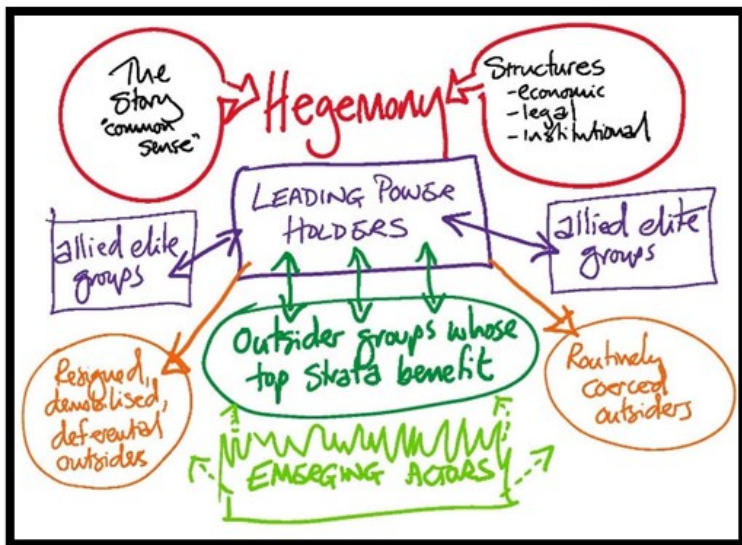 The
Story
"common
sense"
Hegemony
Structures
- economic
- legal
- institutional
LEADING POWER
HOLDERS
allied elite
groups
allied elite
groups
Outsider groups whose
top strata benefit
Resigned,
demobilised,
deferential
outsides
Routinely
coerced
outsiders
EMERGING ACTORS